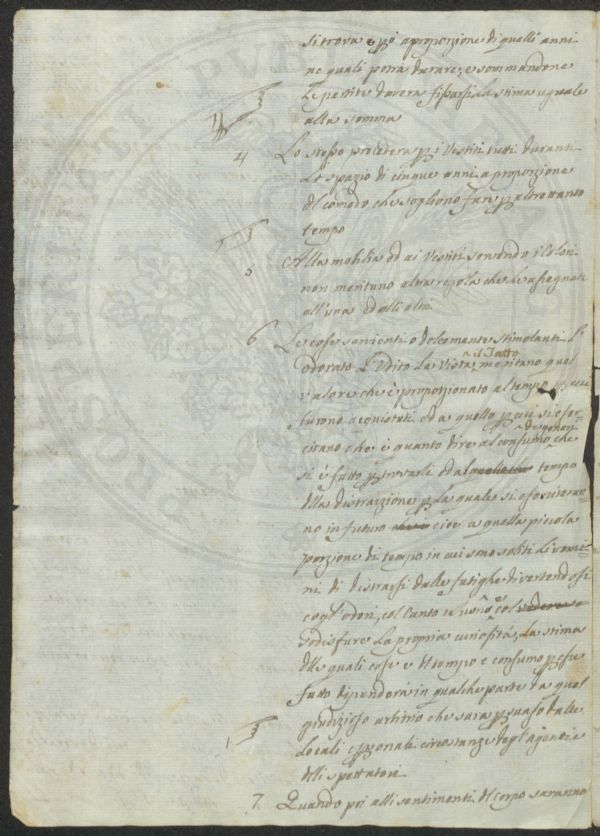 si trova e pō a proporzione di quelli anni
ne quali potrà durare, e sommandone
le partite dovera fissarsi la stima uguale
alla somma
4 Lo stesso procedera p i Vestiti tutti duranti
lo spazio di cinque anni a proporzione
del comodo che sogliono fare p altrettanto
tempo
5 Alla mobilia ed ai Vestiti servendo i Coloni
non meritano altra regola che le assegnate
all'una ed alli altri
6 Le cose servienti o dolcemente stimolanti l'
Odorato l'Udito la Vista, il Tatto meritano quel
valore che è proporzionato al tempo p cui
furono acquistati ed a quello p cui si eser
citano che è quanto dire al consumo che
si è fatto p trovarle ed al tempo
della distrazione p la quale si eserciteran
no in futuro cioe a quella piccola
porzione di tempo in cui sono soliti li uomi
ni di distrarsi dalle fatighe divertendosi
cogl'odori, col Canto e suono e col
sodisfare la propria curiosità, la stima
delle quali cose e del tempo e consumo p esse
fatto dipenderà in qualche parte da quel
giudizioso arbitrio che sara p suaso dalle
locali e p sonali circostanze degl'agenti e
delli spettatori
7. Quando poi alli sentimenti del Corpo saranno